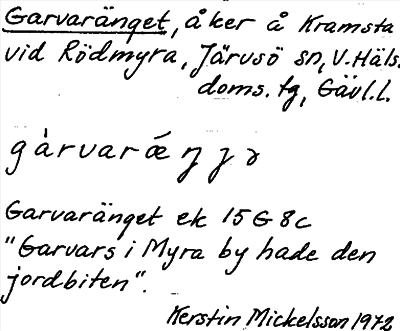 Garvaränget, åker å Kramsta
vid Rödmyra, Järvsö sn, V. Häls.
doms. tg, Gävl.l.
gàrvarǽŋŋə
Garvaränget ek 15G8c
"Garvars i Myra by hade den
jordbiten".
Kerstin Mickelsson 1972